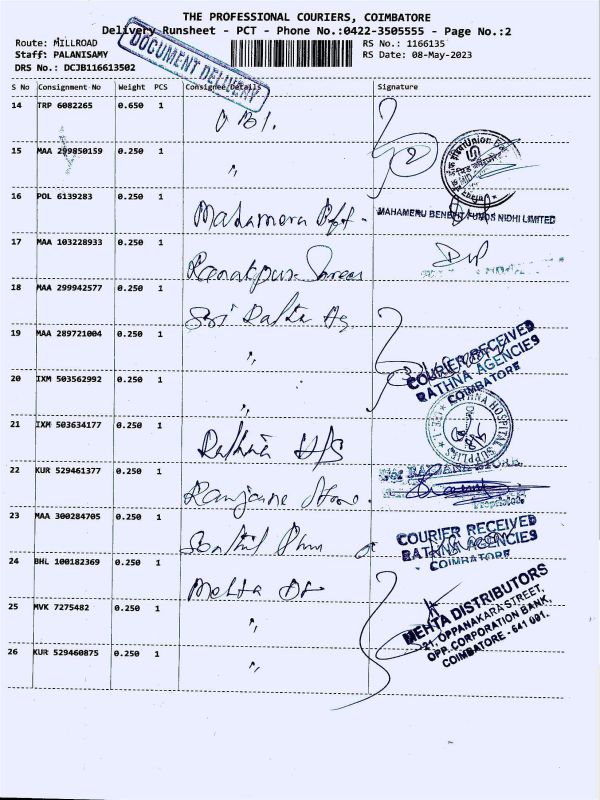 THE PROFESSIONAL COURIERS, COIMBATORE
Delivery Runsheet - PCT - Phone No.:0422-3505555 - Page No.:2
Route: MILLROAD
RS No.: 1166135
Staff: PALANISAMY
RS Date: 08-May-2023
DRS No.: DCJB116613502
DOCUMENT DELIVERY
S No Consignment No Weight PCS Consignee Details Signature
14 TRP 6082265 0.650 1
15 MAA 299850159 0.250 1 "
Union
16 POL 6139283 0.250 1 Mahameru
MAHAMERU BENEFIT FUNDS NIDHI LIMITED
17 MAA 103228933 0.250 1
18 MAA 299942577 0.250 1 Sri Rathna Ag
19 MAA 289721004 0.250 1 "
COURIER RECEIVED
RATHNA AGENCIES
COIMBATORE
20 IXM 503562992 0.250 1 "
21 IXM 503634177 0.250 1 Rathna H/S
HOSPITAL SUPPLIES
22 KUR 529461377 0.250 1 Ranjana Store
Proprietor
23 MAA 300284705 0.250 1
COURIER RECEIVED
RATHNA AGENCIES
COIMBATORE
24 BHL 100182369 0.250 1 Mehta Dt
MEHTA DISTRIBUTORS
21, OPPANAKARA STREET,
OPP. CORPORATION BANK,
COIMBATORE - 641 001.
25 MVK 7275482 0.250 1 "
26 KUR 529460875 0.250 1 "